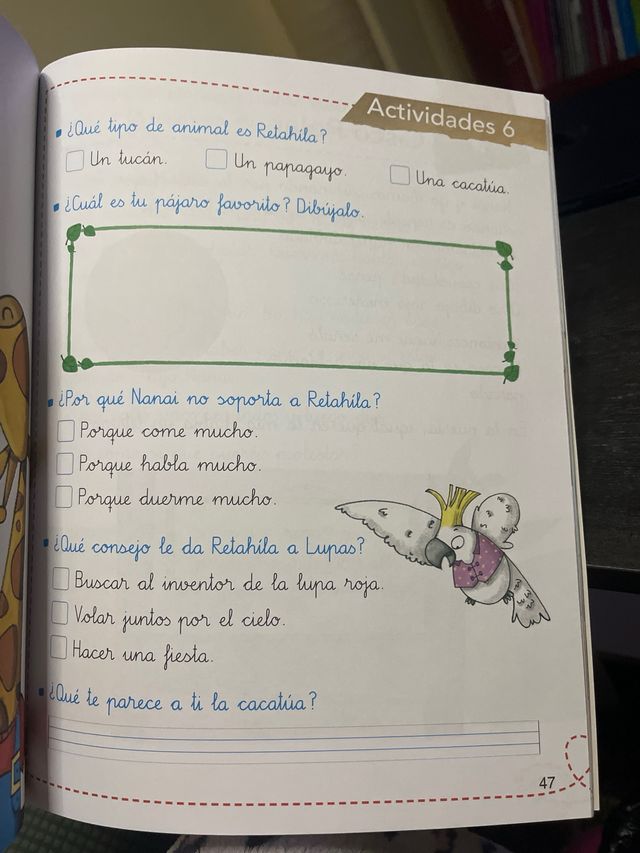 Actividades 6
¿Qué tipo de animal es Retahíla?
Un tucán. Un papagayo. Una cacatúa.
¿Cuál es tu pájaro favorito? Dibújalo.
¿Por qué Nanai no soporta a Retahíla?
Porque come mucho.
Porque habla mucho.
Porque duerme mucho.
¿Qué consejo le da Retahíla a Lupas?
Buscar al inventor de la lupa roja.
Volar juntos por el cielo.
Hacer una fiesta.
¿Qué te parece a ti la cacatúa?
47